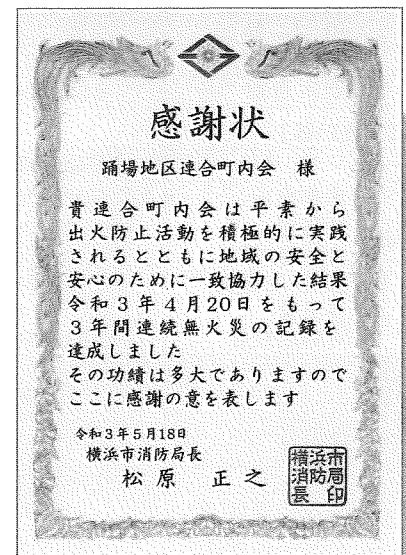 感謝状
踊場地区連合町内会 様
貴連合町内会は平素から
出火防止活動を積極的に実践
されるとともに地域の安全と
安心のために一致協力した結果
令和3年4月20日をもって
3年間連続無火災の記録を
達成しました
その功績は多大でありますので
ここに感謝の意を表します
令和3年5月18日
横浜市消防局長
松原 正之
横浜市
消防局
長印